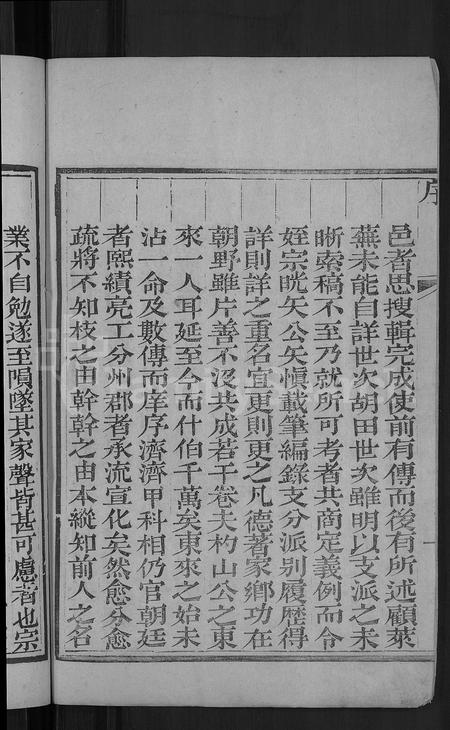 序
邑者悉搜輯完成使前有傳而後有所述顧萊
蕪未能自詳世次胡田世次雖明以支派之未
晰索稿不至乃就所可考者共商定義例而令
姪宗晄矢公矢慎載筆編錄支分派别履歷得
詳則詳之重名宜更則更之凡德著家鄉功在
朝野雖片善不沒共成若干卷夫杓山公之東
來一人耳延至今而什伯千萬矣東來之始未
沾一命及數傳而庠序濟濟甲科相仍官朝廷
者熙績亮工分州郡者承流宣化矣然愈分愈
疏將不知枝之由幹幹之由本縱知前人之名
業不自勉遂至隕墜其家聲皆甚可慮者也宗